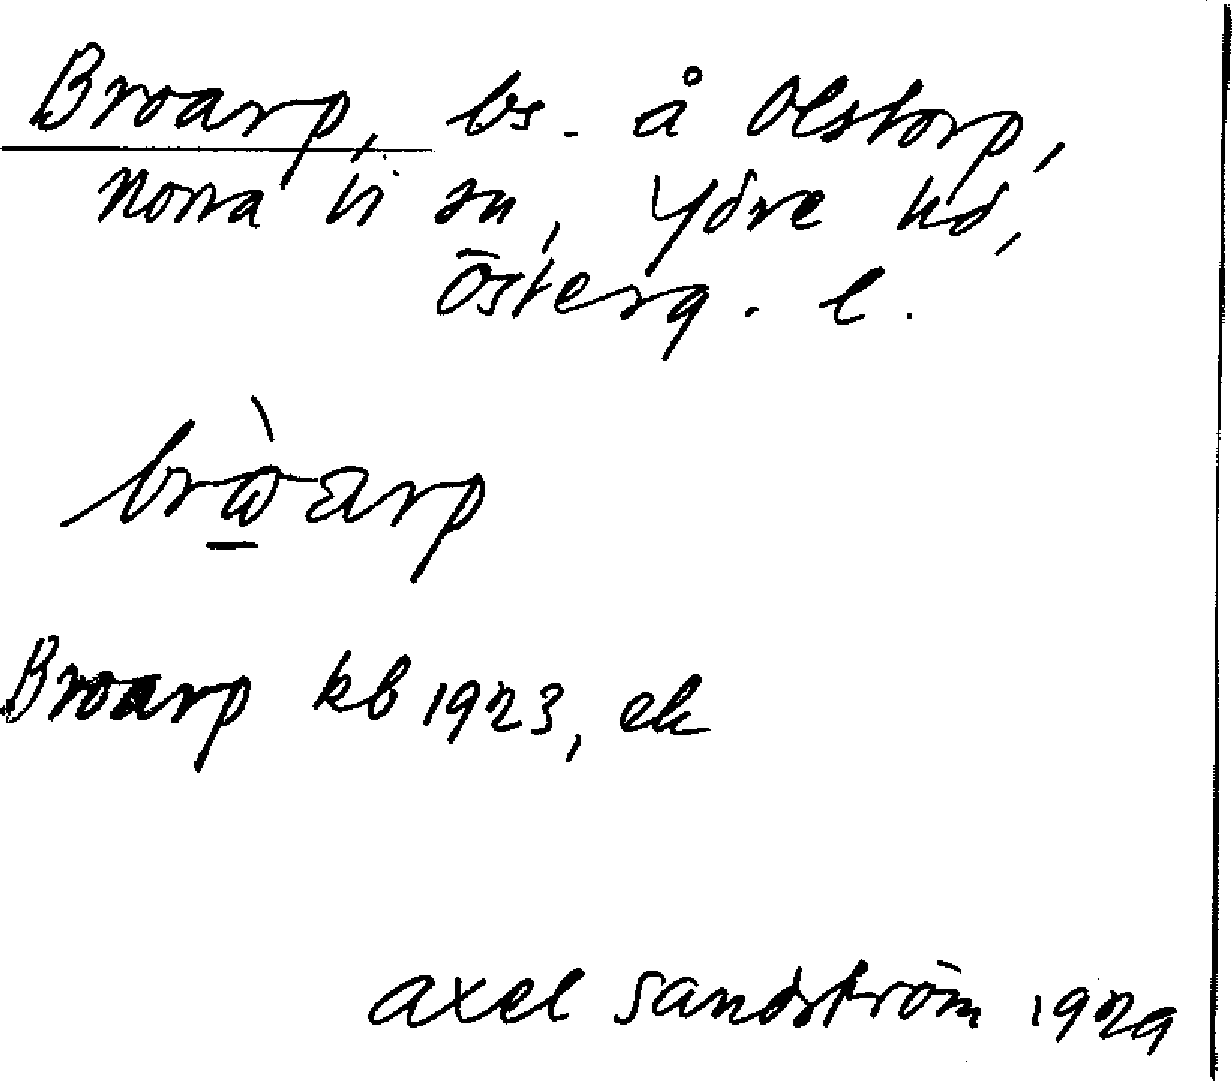 Broarp, bs. å Olstorp,
Norra Vi sn, Ydre hd,
Österg. l.
brὼarp
Broarp kb 1923, ek
Axel Sandström 1929